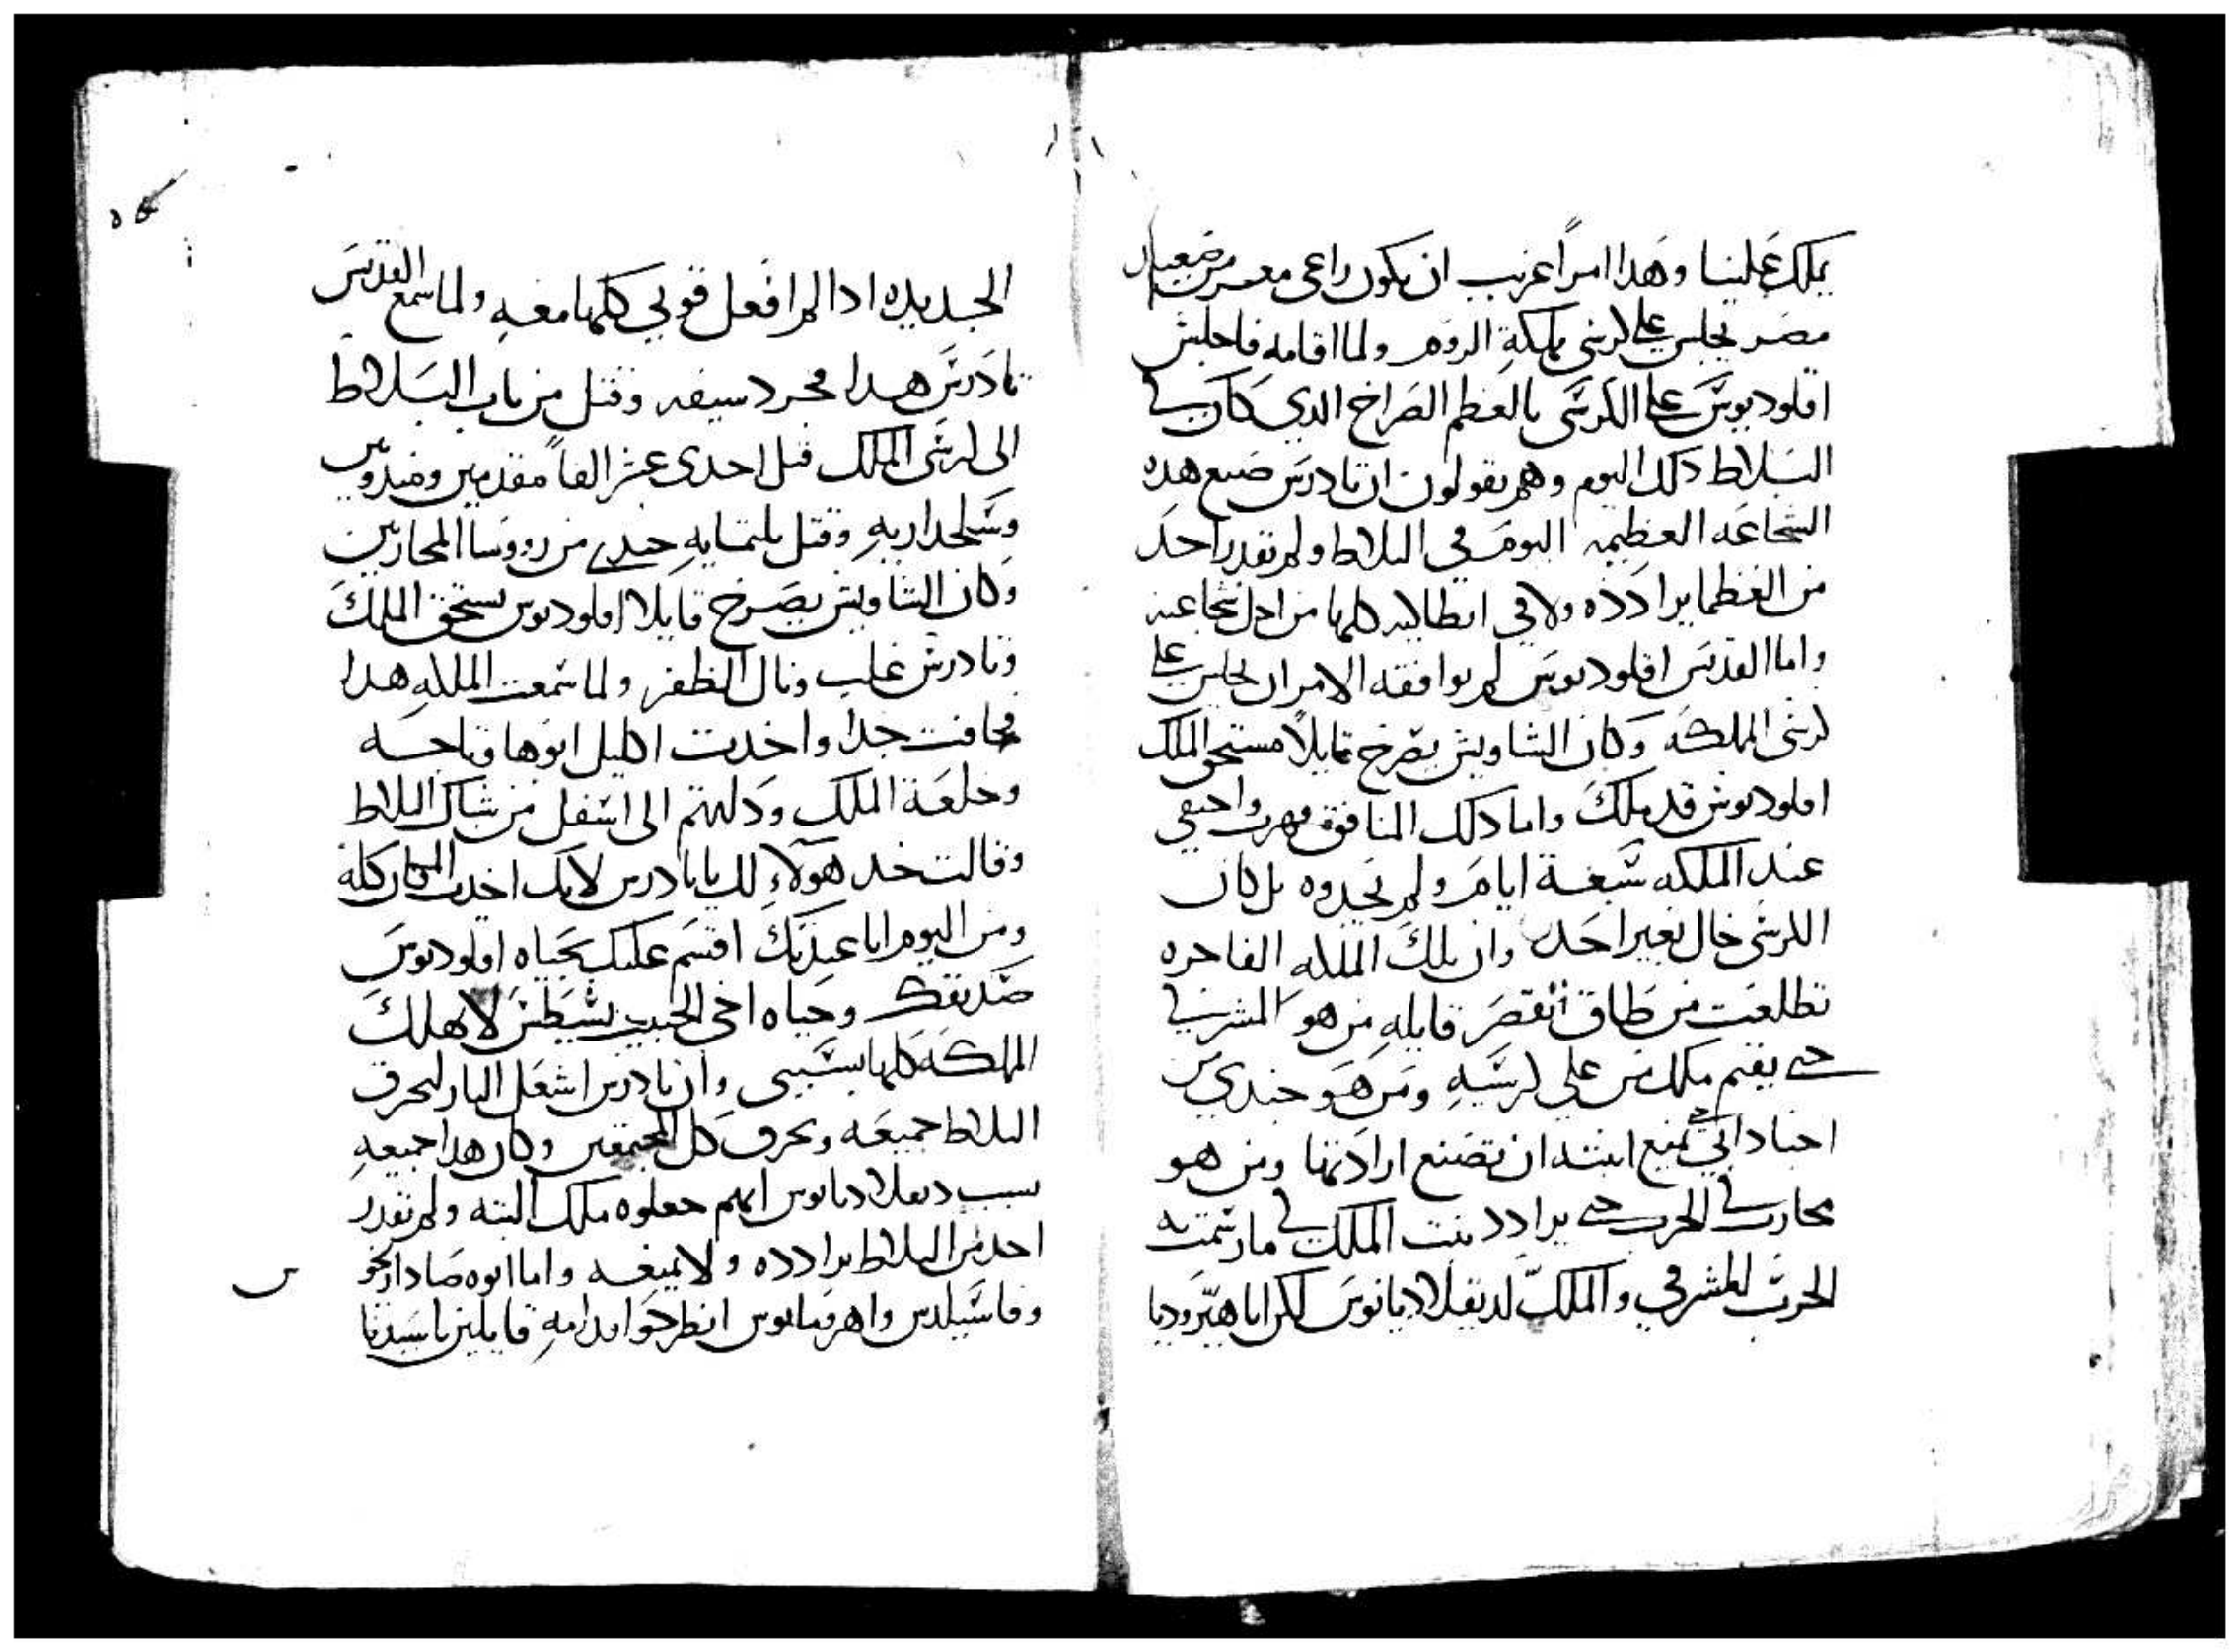 يملك علينا وهدا امراً غريب ان يكون راعي معز من صعيد
مصر يجلس على كرسي مملكة الروم ولما اقامه فاجلس
اقلوديوس على الكرسي بالعظم الصراخ الدي كان في
البلاط دلك اليوم وهم يقولون ان تادرس صنع هده
الشجاعه العظيمه اليوم في البلاط ولم يقدر احد
من العظما يرادده ولا في انطاكيه كلها من اجل شجاعته
واما القديس اقلوديوس لم يوافقه الامر ان يجلس على
كرسي المملكه وكان الشاويش يصرخ قايلاً مستحق الملك
اقلوديوس قد ملك واما دلك المنافق فهرب واختفى
عند الملكه سبعة ايام ولم يجدوه بل كان
الكرسي خال بغير احد وان تلك الملكه الفاجره
تطلعت من طاق القصر قايله من هو المشرفي
حتى يقيم ملك من على كرسيه ومن هو جندي من
اجناد ابي حتى يمنع ابنته ان تصنع ارادتها ومن هو
محارب في الحرب حتى يرادد بنت الملك في ما رسمت به
الحرب للمشرقي والملك لديقلاديانوس لكن انا هيروديا
الجديده ادا لم افعل قوتي كلها معه ولما سمع القديس
تادرس هدا فجرد سيفه وقتل من باب البلاط
الى كرسي الملك قتل احدى عشر الفاً مقدمين وجنود
وسلحداريه وقتل تلتمايه جندي من رووسا المحاربين
وكان الشاويش يصرخ قايلا اقلوديوس يستحق الملك
وتادرس غلب ونال الظفر ولما سمعت الملكه هدا
فخافت جدا واخدت اكليل ابوها وتاجه
وخلعة الملك ودلتهم الى اسفل من شباك البلاط
وقالت خد هولاء لك يا تادرس لانك اخدت المكان كله
ومن اليوم انا عبدتك اقسم عليك بحياه اقلوديوس
صديقك وحياه اخي الحبيب يسطس لا تهلك
المملكه كلها بسببي وان تادرس اشعل النار ليحرق
البلاط جميعه ويحرق كل المجتمعين وكان هدا جميعه
بسبب ديقلاديانوس انهم جعلوه ملك البته ولم يقدر
احد من البلاط يرادده ولا يمنعه واما ابوه صادارخو
وفاسيلدس واهرمانوس انطرحوا قدامه قايلين يا سيدنا